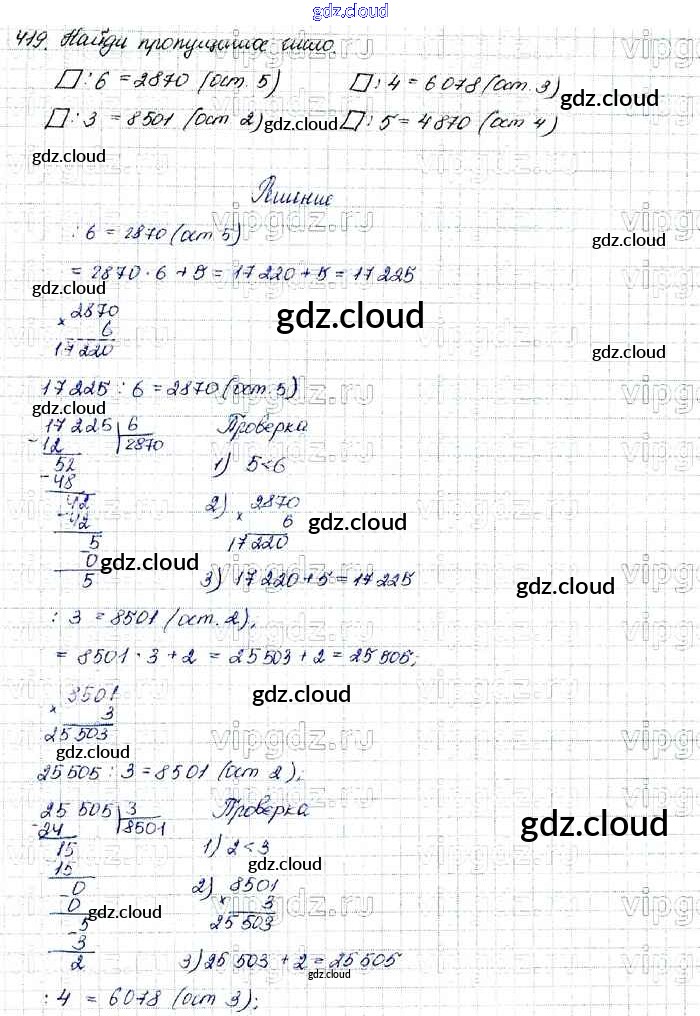 gdz.cloud
419. Найди пропущенное число.
□ : 6 = 2870 (ост. 5) □ : 4 = 6078 (ост. 3)
□ : 3 = 8501 (ост 2) □ : 5 = 4870 (ост 4)
Решение
: 6 = 2870 (ост 5)
= 2870 · 6 + 5 = 17 220 + 5 = 17 225
2870
× 6
17 220
17 225 : 6 = 2870 (ост. 5)
17 225 | 6 Проверка
- 12 | 2870
52 1) 5 < 6
- 48
42 2) 2870
- 42 × 6
5 17 220
- 0
5 3) 17 220 + 5 = 17 225
: 3 = 8501 (ост. 2),
= 8501 · 3 + 2 = 25 503 + 2 = 25 505;
8501
× 3
25 503
25 505 : 3 = 8501 (ост 2);
25 505 | 3 Проверка
- 24 | 8501
15 1) 2 < 3
- 15
0 2) 8501
- 0 × 3
5 25 503
- 3
2 3) 25 503 + 2 = 25 505
: 4 = 6078 (ост 3);
gdz.cloud
vipgdz.ru